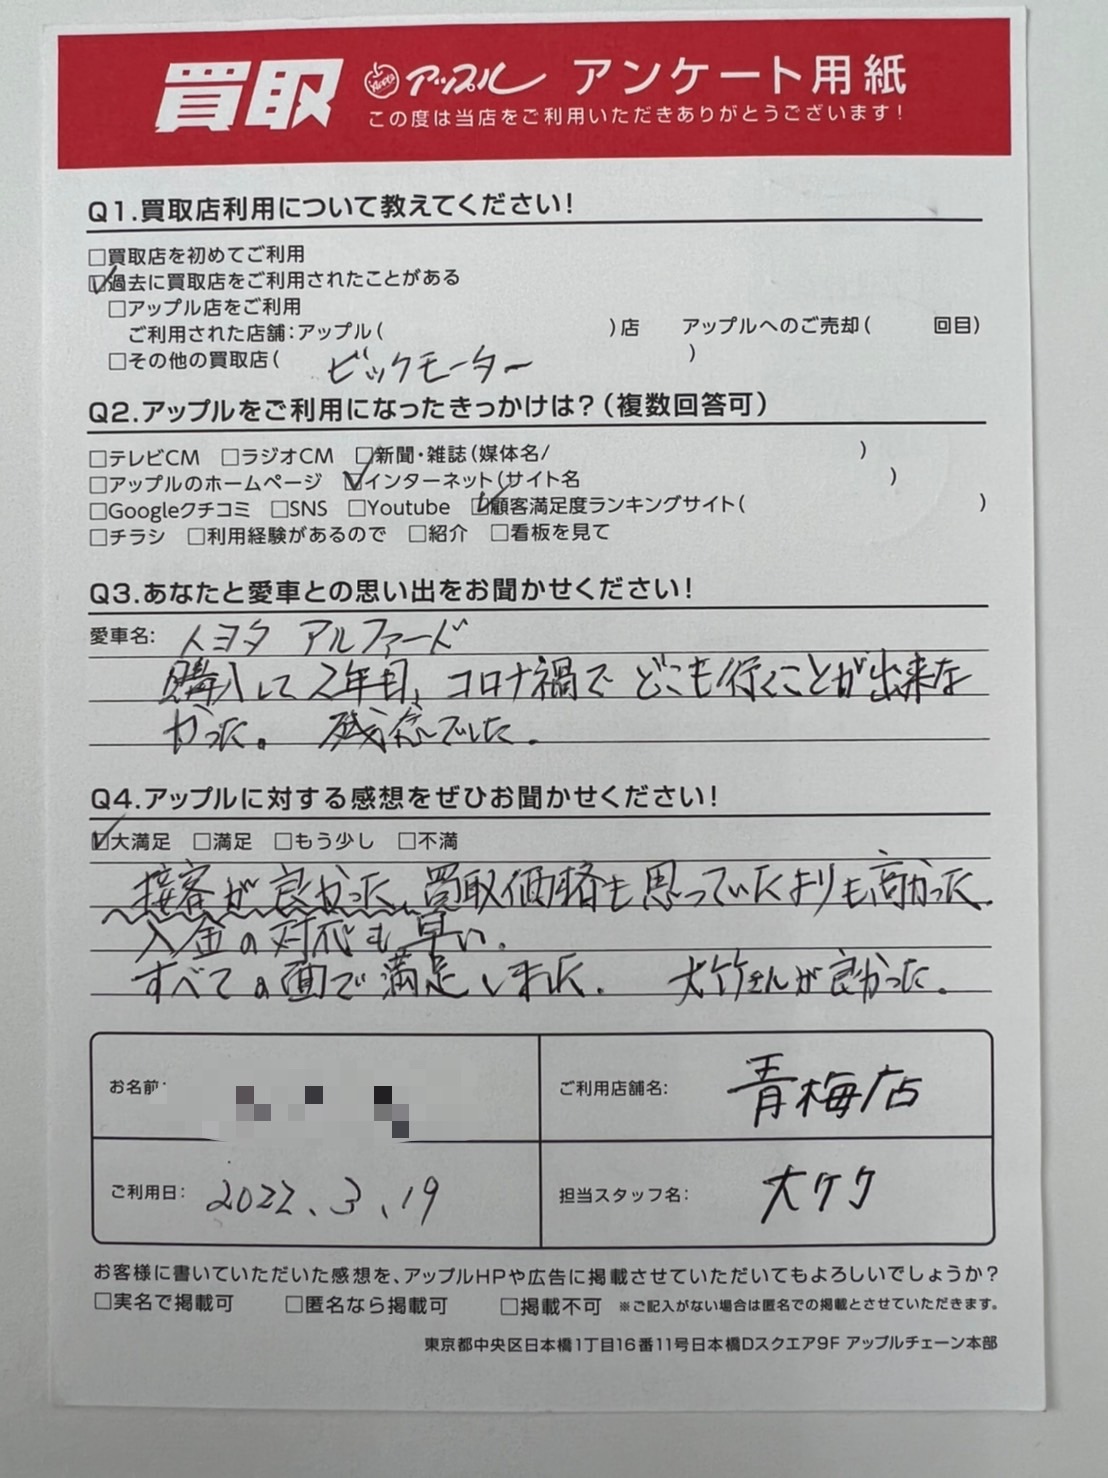 買取 Apple アップル アンケート用紙
この度は当店をご利用いただきありがとうございます!
Q1.買取店利用について教えてください!
□買取店を初めてご利用
☑過去に買取店をご利用されたことがある
□アップル店をご利用
ご利用された店舗:アップル( )店 アップルへのご売却( 回目)
□その他の買取店( ビックモーター )
Q2.アップルをご利用になったきっかけは?(複数回答可)
□テレビCM □ラジオCM □新聞・雑誌(媒体名/ )
□アップルのホームページ ☑インターネット(サイト名 )
□Googleクチコミ □SNS □Youtube ☑顧客満足度ランキングサイト( )
□チラシ □利用経験があるので □紹介 □看板を見て
Q3.あなたと愛車との思い出をお聞かせください!
愛車名: トヨタ アルファード
購入して2年目、コロナ禍でどこも行くことが出来な
かった。 残念でした。
Q4.アップルに対する感想をぜひお聞かせください!
☑大満足 □満足 □もう少し □不満
接客が良かった、買取価格も思っていたよりも高かった。
入金の対応も早い。
すべての面で満足しました。 大竹さんが良かった。
お名前:
ご利用店舗名: 青梅店
ご利用日: 2022.3.19
担当スタッフ名: 大タケ
お客様に書いていただいた感想を、アップルHPや広告に掲載させていただいてもよろしいでしょうか?
□実名で掲載可 □匿名なら掲載可 □掲載不可 ※ご記入がない場合は匿名での掲載とさせていただきます。
東京都中央区日本橋1丁目16番11号日本橋Dスクエア9F アップルチェーン本部